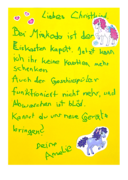 Liebes Christkind
Bei Mirakado ist der
Einkarten kaputt. Jetzt kann
ich ihr keine Karotten mehr
schenken
Auch der Gamb
funktioniert nicht mehr, und
ist blöd.
Kannst du uns neue Geräte
bringen?
Deine
Amelie